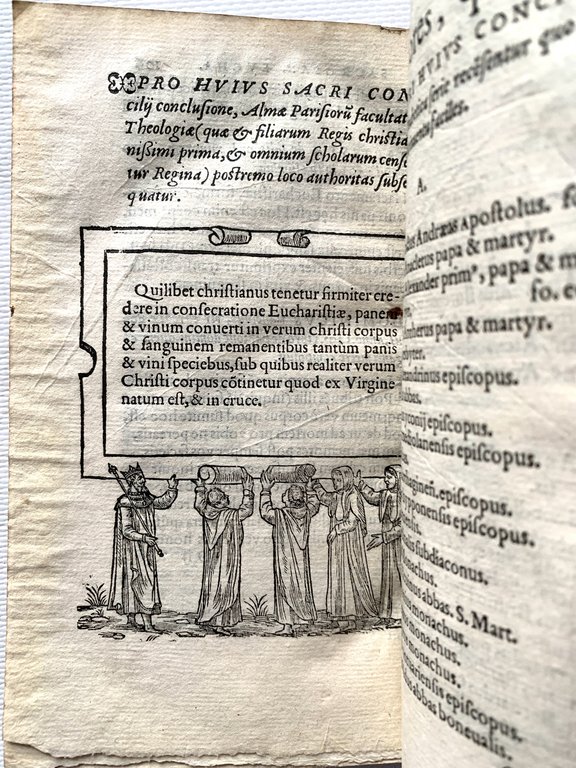 PRO HVIVS SACRI CON
cilij conclusione, Almæ Parisiorũ facultat
Theologiæ (quæ & filiarum Regis christia
nissimi prima, & omnium scholarum cense
tur Regina) postremo loco authoritas subse
quatur.
Quilibet christianus tenetur firmiter cre-
dere in consecratione Eucharistiæ, panem
& vinum conuerti in verum christi corpus
& sanguinem remanentibus tantùm panis
& vini speciebus, sub quibus realiter verum
Christi corpus cõtinetur quod ex Virgine
natum est, & in cruce.
HVIVS CONCI
serie recensentur quo
faciles.
A.
Andræas Apostolus. fo
papa & martyr.
exander prim9, papa & m
fo. e
therus papa & martyr.
byter.
andrinus episcopus.
yconij episcopus.
bolanensis episcopus.
aginen. episcopus.
pponensis episcopus.
ensis.
subdiaconus.
nachus.
abbas. S. Mart.
monachus.
monachus.
monachus.
ariensis episcopus.
abbas boneualis.